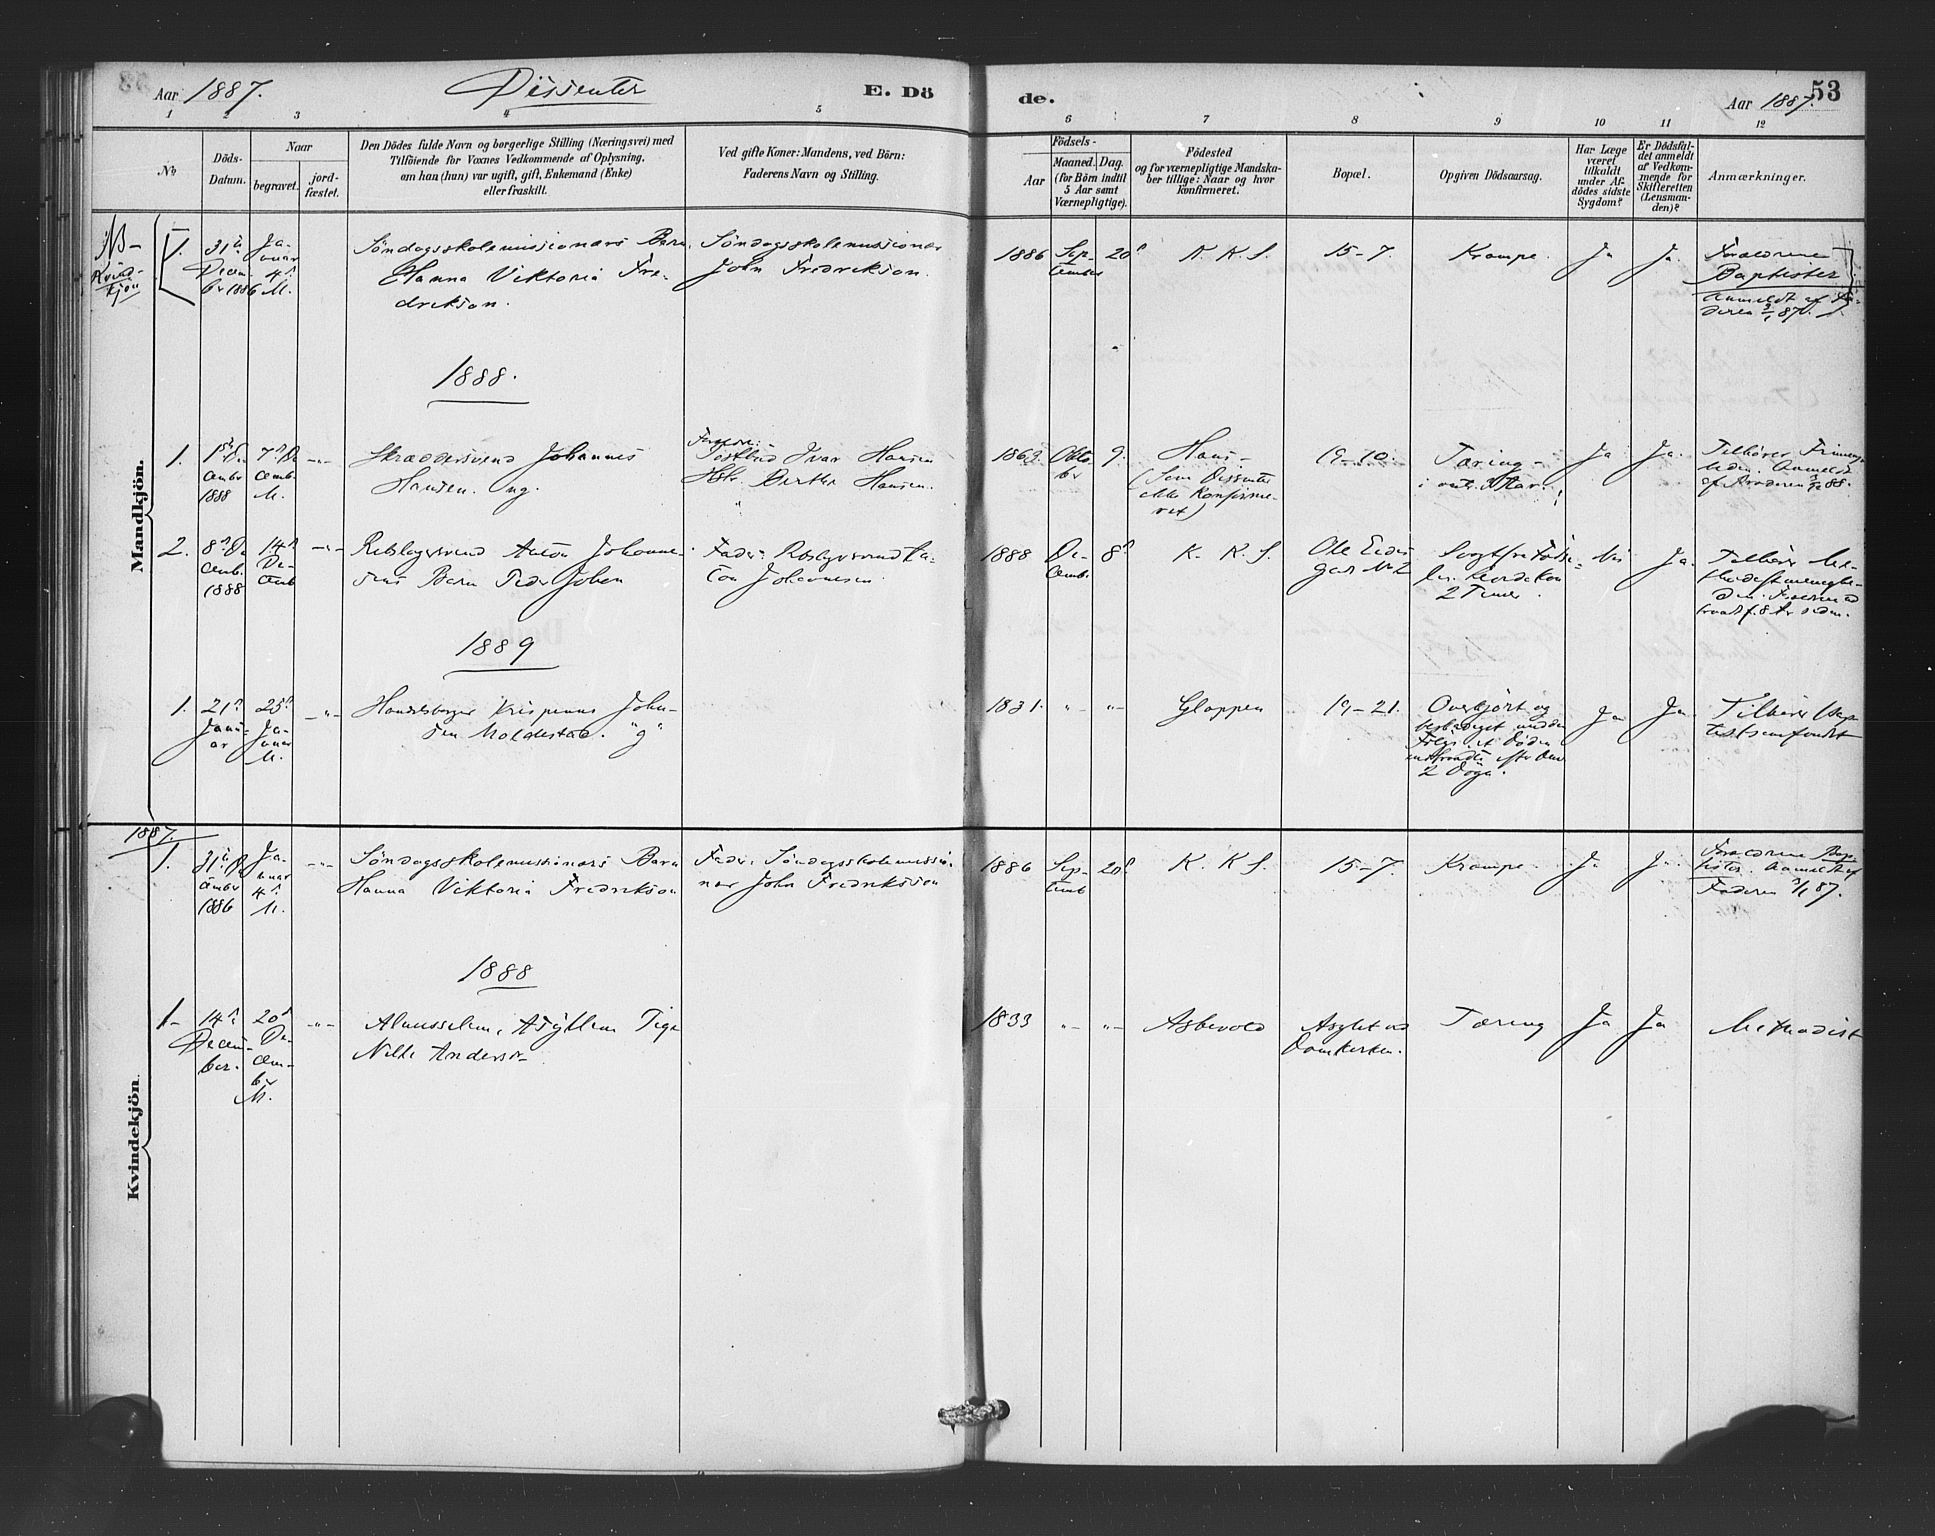 Aar 1887.
Dissenter
E. Dö
de.
Aar 1887.
53
1 2 3 4 5 6 7 8 9 10 11 12
No
Döds-
Datum.
Naar
begravet.
jord-
fæstet.
Den Dödes fulde Navn og borgerlige Stilling (Næringsvei) med
Tilföiende for Voxnes Vedkommende af Oplysning,
om han (hun) var ugift, gift, Enkemand (Enke)
eller fraskilt.
Ved gifte Koner: Mandens, ved Börn:
Faderens Navn og Stilling.
Aar
Födsels-
Maaned. Dag.
(for Börn indtil
5 Aar samt
Værnepligtige).
Födested
og for værnepligtige Mandska-
ber tillige: Naar og hvor
konfirmeret.
Bopæl.
Opgiven Dödsaarsag.
Har Læge
været
tilkaldt
under Af-
dödes sidste
Sygdom?
Er Dödsfal-
det anmeldt
af Vedkom-
mende for
Skifteretten
(Lensman-
den)?
Anmærkninger.
Mandkjön.
NB-
Kvind-
kjön
1.
31te
Decem-
br 1886
Ja-
nuar
4de
M.
Søndagsskolemissionærs Barn
Hanna Viktoria Fre-
drikson.
Søndagsskolemissionær
John Fredrikson.
1886
Sep-
tember
20de
K. K. S.
15-7.
Krampe.
Ja
Ja.
Forældrene
Baptister
Anmeldt af Fa-
deren 3/1 87.
1888.
1.
1ste De
cember
1888
7de De
cemb.
M.
-"-
Skræddersvend Johannes
Hansen. ug.
Postbud Ivar Hansen
Hstr. Berthe Hansen.
1863.
Okto
br
9.
Haus-
(Som Dissenter
ikke konfirme-
ret)
19-10.
Tæring-
Ja
Ja.
Tilhører Frimenig-
heden. Anmeldt
af Broderen 3/12 88.
2.
8de De
cemb.
1888
14de
De-
cemb
-"-
Rebslagersvend Anton Johanne-
sens Barn Peder Johan
Fader: Rebslagersvend An-
ton Johannesen.
1888
De-
cemb.
8de
K. K. S.
Ole
gad No 2
2 Timer.
Nei
Ja.
Tilhører Me-
thodistmenighe-
den. Forældrene ud
traadt f. 8 Ar siden.
1889
1.
21de
Janu-
ar
25de
Ja-
nuar
M.
-"-
Handelsborger Krispinus John-
sen Moldestad. "g"
1831.
"-
"-
Gloppen
19-21.
Overkjørt og
beskadiget
Følge at Døden
indtraadte efter
2 Døgn.
Ja
Ja.
Tilhører Bap-
tistsamfundet
Kvindekjön.
1887.
1.
31te De
cember
1886
Ja-
nuar
4de
M.
-"-
Søndagsskolemissionærs Barn
Hanna Viktoria Fredrikson
Fader: Søndagsskolemissio-
nær John Fredriksson
1886
Sep-
temb
20de
K. K. S.
15-7.
Krampe
Ja
Ja.
Forældrene Bap-
tister. Anmeldt af
Faderen 3/1 87.
1888
1-
14de
Decem-
ber.
20de
De-
cem-
br
M.
-"-
Almisselem, Asyllem Pige
Nille Anders-
1833
"-
"-
Askevold
Asylet ved
Domkirken.
Tæring
Ja
Ja
Methodist